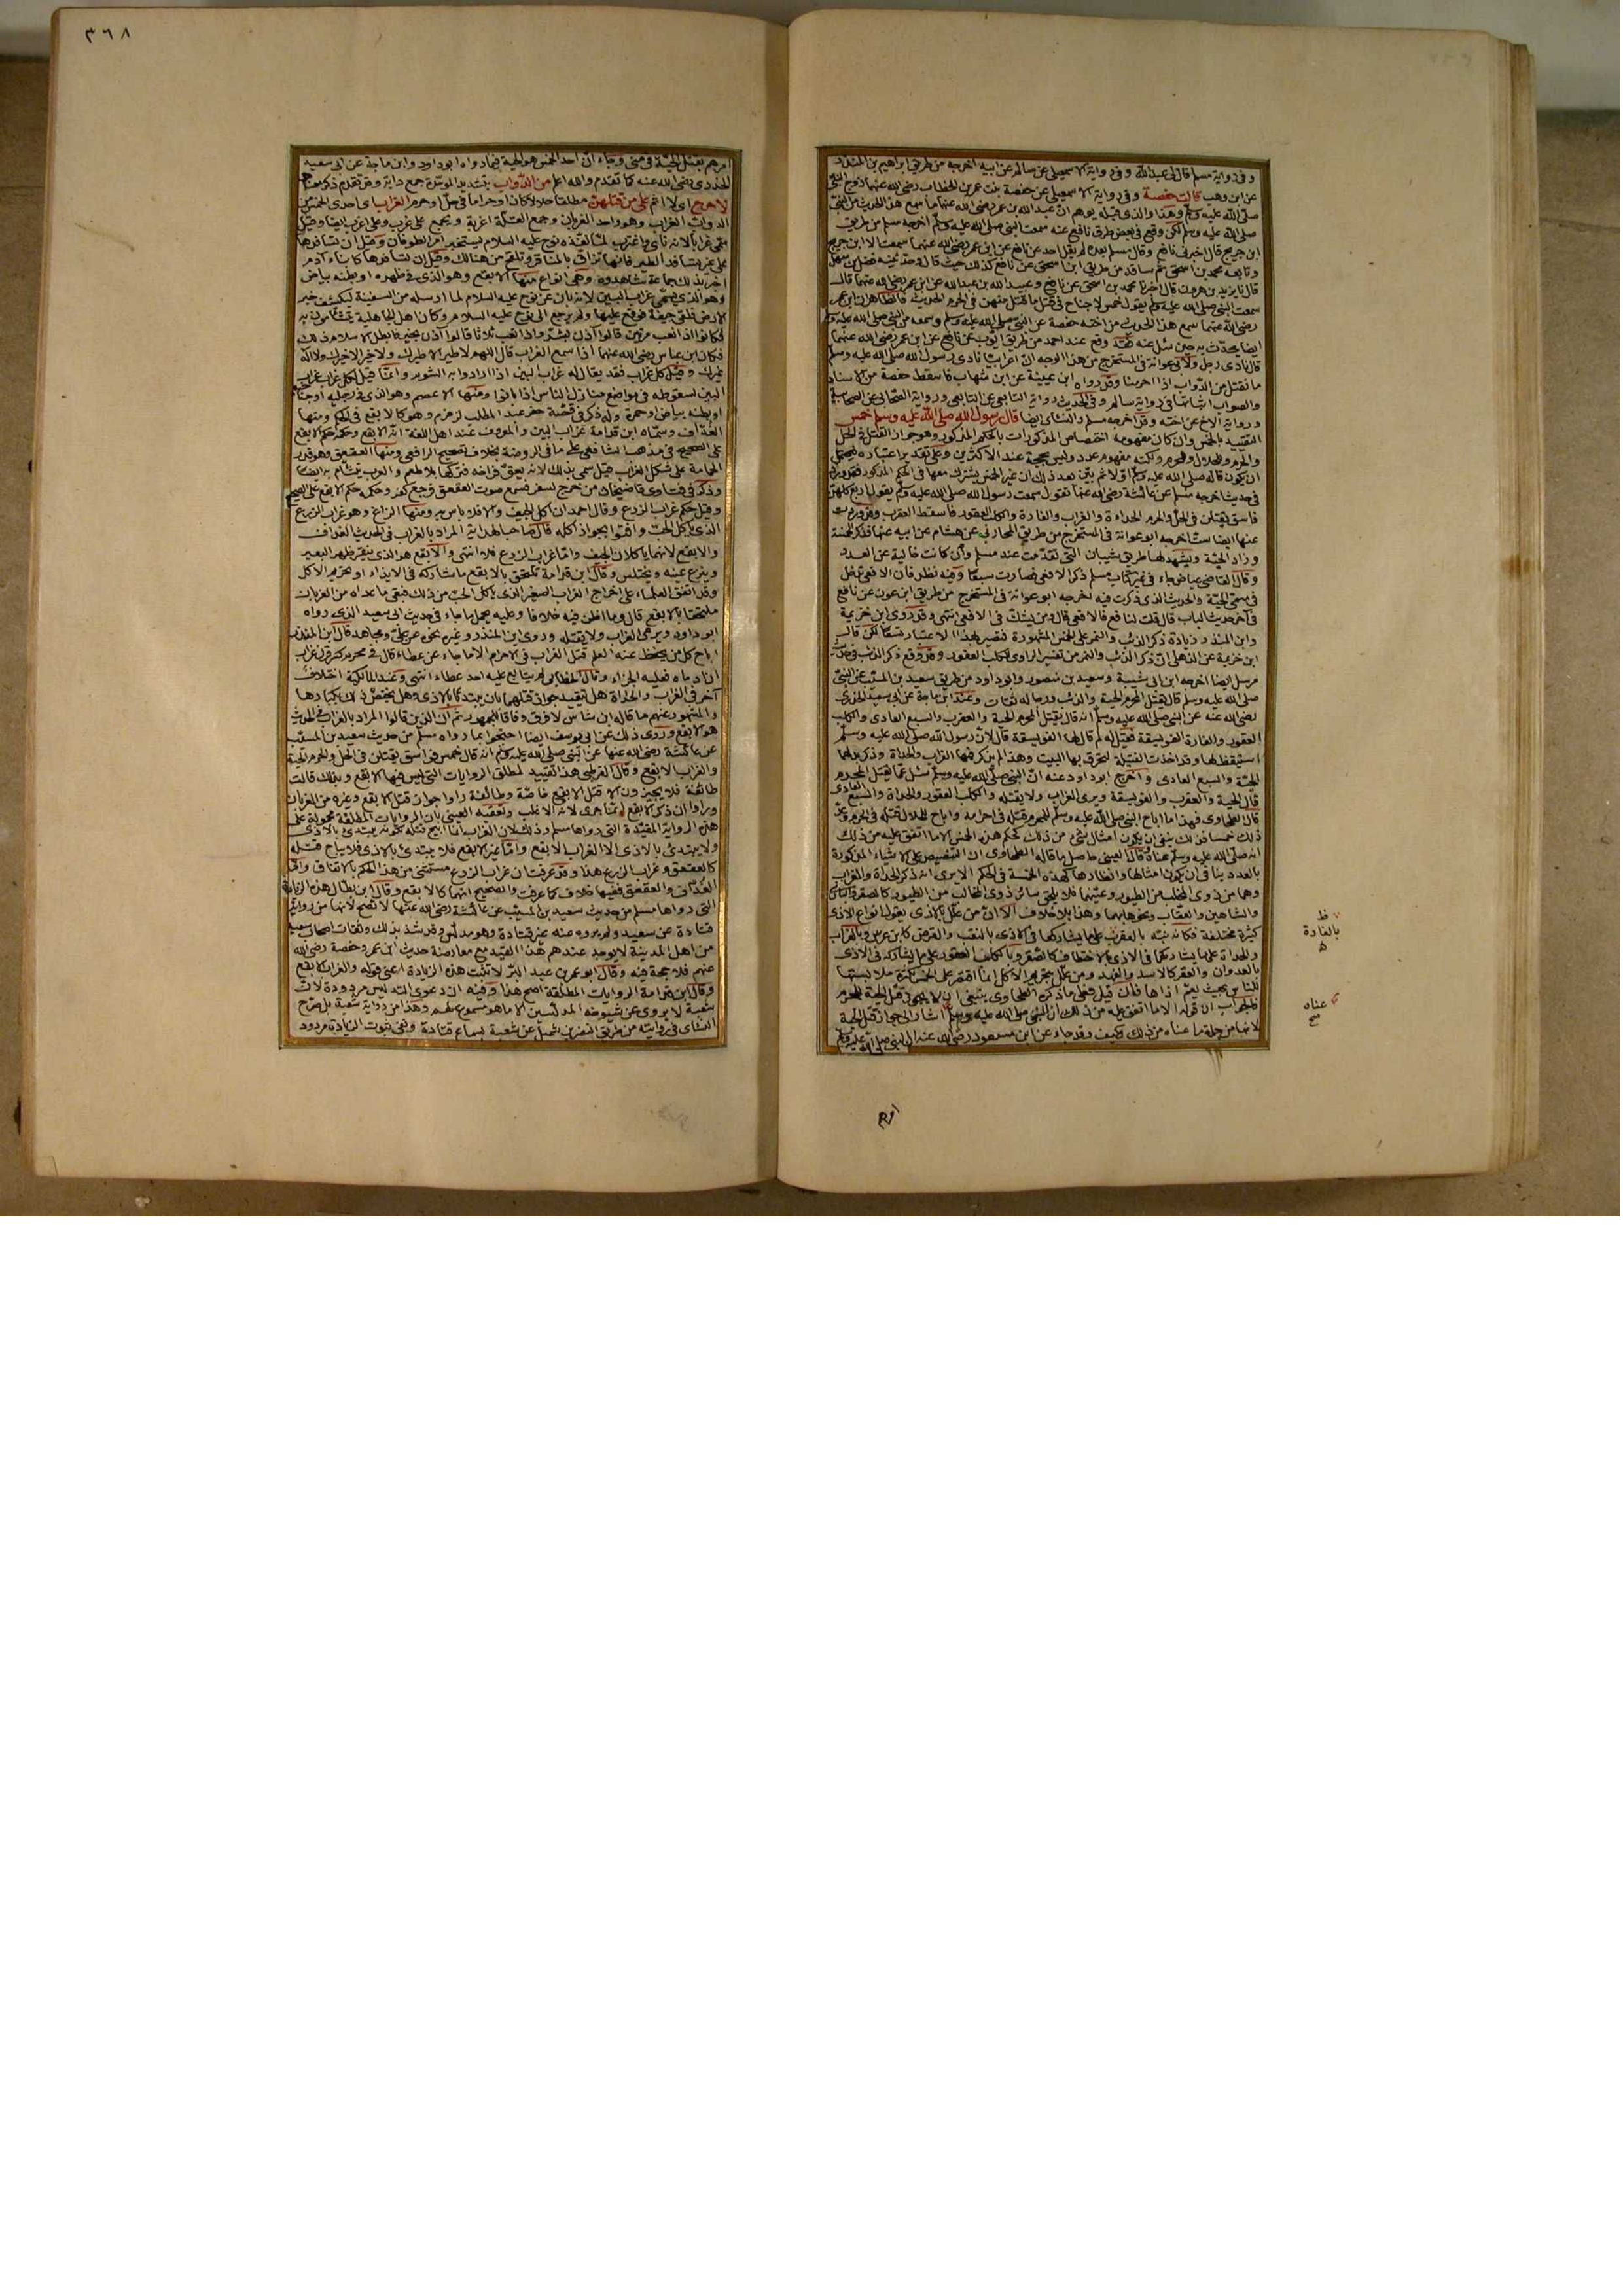 وفى رواية مسلم قال لى عبدالله وفى رواية الاسمعيلى عن سالم عن ابيه اخرجه من طريق ابراهيم بن المنذر
عن ابن وهب قالت حفصة وفى رواية الاسمعيلى عن حفصة بنت عمر بن الخطاب رضى الله عنهما زوج النبى
صلى الله عليه وسلم وهذا والذى قبله يوهم ان عبدالله بن عمر رضى الله عنهما ما سمع هذا الحديث من النبى
صلى الله عليه وسلم لكن وقع فى بعض طرق نافع عنه سمعت النبى صلى الله عليه وسلم اخرجه مسلم من طريق
ابن جريج قال اخبرنى نافع وقال مسلم بعده لم يقل احد عن نافع عن ابن عمر رضى الله عنهما سمعت الا ابن جريج
وتابعه محمد بن اسحق ثم ساقه من طريق ابن اسحق عن نافع كذلك حيث قال وحدثنيه فضل بن سهل
قال نا يزيد بن هرون قال اخبرنا محمد بن اسحق عن نافع وعبيد الله بن عبدالله عن ابن عمر رضى الله عنهما قال
سمعت النبى صلى الله عليه وسلم يقول خمس لا جناح فى قتل ما قتل منهن فى الحرم الحديث فالظاهر ان ابن عمر
رضى الله عنهما سمع هذا الحديث من اخته حفصة عن النبى صلى الله عليه وسلم وسمعه من النبى صلى الله عليه وسلم
ايضا يحدث به حين سئل عنه فقد وقع عند احمد من طريق ايوب عن نافع عن ابن عمر رضى الله عنهما
قال نادى رجل ولابى عوانة فى المستخرج من هذا الوجه ان اعرابيا نادى رسول الله صلى الله عليه وسلم
ما نقتل من الدواب اذا احرمنا وقد رواه ابن عيينة عن ابن شهاب فاسقط حفصة من الاسناد
والصواب اثباتها فى رواية سالم وفى الحديث رواية التابعى عن التابعى ورواية الصحابى عن الصحابية
ورواية الاخ عن اخته وقد اخرجه مسلم والنسائى ايضا قال رسول الله صلى الله عليه وسلم خمس
التقييد بالخمس وان كان مفهومه اختصاص المذكورات بالحكم المذكور وهو جواز القتل فى الحل
والحرم والحلال والمحرم ولكنه مفهوم عدد وليس بحجة عند الاكثرين وعلى تقدير اعتباره فيحتمل
ان يكون قاله صلى الله عليه وسلم اولا ثم بين بعد ذلك ان غير الخمس يشترك معها فى الحكم المذكور فقد ورد
فى حديث اخرجه مسلم عن عائشة رضى الله عنها تقول سمعت رسول الله صلى الله عليه وسلم يقول اربع كلهن
فاسق يقتلن فى الحل والحرم الحداءة والغراب والفارة والكلب العقور فاسقط العقرب وقد ورد
عنها ايضا ست اخرجه ابو عوانة فى المستخرج من طريق المحاربى عن هشام عن ابيه عنها فذكر الخمسة
وزاد الحية ويشهد لها طريق شيبان التى تقدمت عند مسلم وان كانت خالية عن العدد
وقال القاضى عياض جاء فى غير كتاب مسلم ذكر الافعى فصارت سبعا وفيه نظر فان الافعى تدخل
فى مسمى الحية والحديث الذى ذكرت فيه اخرجه ابو عوانة فى المستخرج من طريق ابن عون عن نافع
فى آخر حديث الباب قال قلت لنافع فالافعى قال ومن يشك فى الافعى انتهى وقد روى ابن خزيمة
وابن المنذر زيادة ذكر الذئب والنمر على الخمس المشهورة فتصير بهذا الاعتبار تسعا لكن قال
ابن خزيمة عن الذهلى ان ذكر الذئب والنمر من تفسير الراوى للكلب العقور وقد وقع ذكر الذئب فى حديث
مرسل ايضا اخرجه ابن ابى شيبة وسعيد بن منصور وابو داود من طريق سعيد بن المسيب عن النبى
صلى الله عليه وسلم قال يقتل المحرم الحية والذئب ورجاله ثقات وعند ابن ماجة عن ابى سعيد الخدرى
رضى الله عنه عن النبى صلى الله عليه وسلم انه قال يقتل المحرم الحية والعقرب والسبع العادى والكلب
العقور والفارة الفويسقة فقيل له لم قال لها الفويسقة قال لان رسول الله صلى الله عليه وسلم
استيقظ لها وقد اخذت الفتيلة لتحرق بها البيت وهذا لم يذكر فيها الغراب والحداة وذكر بدلهما
الحية والسبع العادى واخرج ابو داود عنه ان النبى صلى الله عليه وسلم سئل عما يقتل المحرم
قال الحية والعقرب والفويسقة ويرمى الغراب ولا يقتله والكلب العقور والحداة والسبع العادى
قال الطحاوى فهذا ما اباح النبى صلى الله عليه وسلم للمحرم قتله فى احرامه واباح للحلال قتله فى الحرم وعد
ذلك خمسا فذلك ينفى ان يكون امثال شىء من ذلك كحكم هذه الخمس الا ما اتفق عليه من ذلك
انه صلى الله عليه وسلم عناه وقال العينى حاصل ما قاله الطحاوى ان التنصيص على الاشياء المذكورة
بالعدد ينافى ان يكون امثالها وانظارها كهذه الخمسة فى الحكم الا يرى انه ذكر الحداة والغراب
وهما من ذوى المخلب من الطيور وعينهما فلا يلحق سائر ذوى المخالب من الطيور كالصقر والبازى
والشاهين والعقاب ونحوها بهما وهذا بلا خلاف الا ان من علل بالاذى يقول انواع الاذى
كثيرة مختلفة فكانه نبه بالعقرب على ما يشاركها فى الاذى بالنقب والقرض كابن عرس وبالغراب
والحداة على ما يشاركهما فى الاذى بالاختطاف كالصقر وبالكلب العقور على ما يشاركه فى الاذى
بالعدوان والعقر كالاسد والفهد ومن علل بتحريم الاكل انما اقتصر على الخمس لكثرة ملابستها
للناس بحيث يعم اذاها فان قيل فعلى ما ذكره الطحاوى ينبغى ان لا يجوز قتل الحية للمحرم
فالجواب ان قوله الا ما اتفق عليه من ذلك ان النبى صلى الله عليه وسلم اشار الى جواز قتل الحية
لانها من جملة ما عناه من ذلك وكيف وقد جاء عن ابن مسعود رضى الله عنه ان النبى صلى الله عليه وسلم
ظ
بالفارة
عناه
صح
امرهم
٣٦٨
امرهم بقتل الحية فى منى وجاء ان احد الخمس هو الحية فيما رواه ابو داود وابن ماجة عن ابى سعيد
الخدرى رضى الله عنه كما تقدم والله اعلم من الدواب بتشديد الموحدة جمع دابة وقد تقدم ذكر معناها
لا حرج اى لا اثم على من قتلهن مطلقا حلالا كان او حراما فى حل او حرم الغراب اى احدى الخمس من
الدواب الغراب وهو واحد الغربان وجمع القلة اغربة ويجمع على غرب وعلى اغرب ايضا وقيل
سمى غرابا لانه نأى واغترب لما انفذه نوح عليه السلام ليستخبر امر الطوفان
اخبر بذلك جماعة شاهدوه وهى انواع منها الابقع وهو الذى فى ظهره او بطنه بياض
وهو الذى يسمى غراب البين لانه بان عن نوح عليه السلام لما ارسله من السفينة ليكشف خبر
الارض فلقى جيفة فوقع عليها ولم يرجع الى نوح عليه السلام وكان اهل الجاهلية يتشأمون به
فكانوا اذا نعب مرتين قالوا آذن بشر واذا نعب ثلاثا قالوا آذن بخير فابطل الاسلام ذلك
فكان ابن عباس رضى الله عنهما اذا سمع الغراب قال اللهم لا طير الا طيرك ولا خير الا خيرك ولا اله
غيرك وقيل كل غراب فقد يقال له غراب البين اذا ارادوا به الشؤم وانما قيل لكل غراب غراب
البين لسقوطه فى مواضع منازل الناس اذا بانوا ومنها الاعصم وهو الذى فى رجليه او جناحيه
او بطنه بياض او حمرة وله ذكر فى قصة حفر عبد المطلب لزمزم وهو كالابقع فى الحكم ومنها
الغداف وسماه ابن قدامة غراب البين والمعروف عند اهل اللغة انه الابقع وحكمه حكم الابقع
على الصحيح فى مذهب الشافعى على ما فى الروضة بخلاف تصحيح الرافعى ومنها العقعق وهو قدر
الحمامة على شكل الغراب قيل سمى بذلك لانه يعق فراخه فتركها بلا طعم والعرب تتشأم به ايضا
وذكر فى فتاوى قاضيخان من خرج لسفر فسمع صوت العقعق فرجع كفر وحكمه حكم الابقع على الصحيح
وقيل حكم غراب الزرع وقال احمد ان اكل الجيف والا فلا باس به ومنها الزاغ وهو غراب الزرع
الذى ياكل الحب وافتوا بجواز اكله قال صاحب الهداية المراد بالغراب فى الحديث الغداف
والابقع لانهما ياكلان الجيف واما غراب الزرع فلا انتهى والابقع هو الذى ينقر ظهر البعير
وينزع عنه ويختلس وقال ابن قدامة يلتحق بالابقع ما شاركه فى الايذاء او تحريم الاكل
وقد اتفق العلماء على اخراج الغراب الصغير الذى ياكل الحب من ذلك فبقى ما عداه من الغربان
ملتحقا بالابقع قال وما اظن فيه خلافا وعليه يحمل ما جاء فى حديث ابى سعيد الذى رواه
ابو داود ويرمى الغراب ولا يقتله وروى ابن المنذر وغيره نحوه عن على ومجاهد قال ابن المنذر
اباح كل من يحفظ عنه العلم قتل الغراب فى الاحرام الا ما جاء عن عطاء قال فى محرم كسر قرن غراب
ان ادماه فعليه الجزاء وقال الخطابى لم يتابع عليه احد عطاء انتهى وعند المالكية اختلاف
آخر فى الغراب والحداة هل يتقيد جواز قتلهما بان يبتدئا بالاذى وهل يختص ذلك بكبارها
والمشهور عنهم ما قاله ابن شاس لا فرق وفاقا للجمهور ثم ان الذين قالوا المراد بالغراب فى الحديث
هو الابقع وروى ذلك عن ابى يوسف ايضا احتجوا بما رواه مسلم من حديث سعيد بن المسيب
عن عائشة رضى الله عنها عن النبى صلى الله عليه وسلم انه قال خمس فواسق يقتلن فى الحل والحرم الحية
والغراب الابقع وقال القرطبى هذا تقييد لمطلق الروايات التى ليس فيها الابقع وبذلك قالت
طائفة فلا يجيزون الا قتل الابقع خاصة وطائفة راوا جواز قتل الابقع وغيره من الغربان
وراوا ان ذكر الابقع انما جرى لانه الاغلب وتعقبه العينى بان الروايات المطلقة محمولة على
هذه الرواية المقيدة التى رواها مسلم وذلك لان الغراب انما ابيح قتله لكونه يبتدئ بالاذى
ولا يبتدئ بالاذى الا الغراب الابقع واما غير الابقع فلا يبتدئ بالاذى فلا يباح قتله
كالعقعق وغراب الزرع هذا وقد عرفت ان غراب الزرع مستثنى من هذا الحكم بالاتفاق واما
الغداف والعقعق ففيهما خلاف كما عرفت والصحيح انهما كالابقع وقال ابن بطال هذه الزيادة
التى رواها مسلم من حديث سعيد بن المسيب عن عائشة رضى الله عنها لا تصح لانها من رواية
قتادة عن سعيد ولم يروه عنه غير قتادة وهو مدلس وقد شذ بذلك وثقات اصحاب سعيد
من اهل المدينة لا يوجد عندهم هذا القيد مع معارضة حديث ابن عمر وحفصة رضى الله
عنهم فلا حجة فيه وقال ابو عمر بن عبد البر لا تثبت هذه الزيادة اعنى قوله والغراب الابقع
وقال ابن قدامة الروايات المطلقة اصح هذا وفيه ان دعوى التدليس مردودة لان
شعبة لا يروى عن شيوخه المدلسين الا ما هو مسموع لهم وهذا من رواية شعبة بل صرح
النسائى فى روايته من طريق النضر بن شميل عن شعبة بسماع قتادة ونفى ثبوت الزيادة مردود